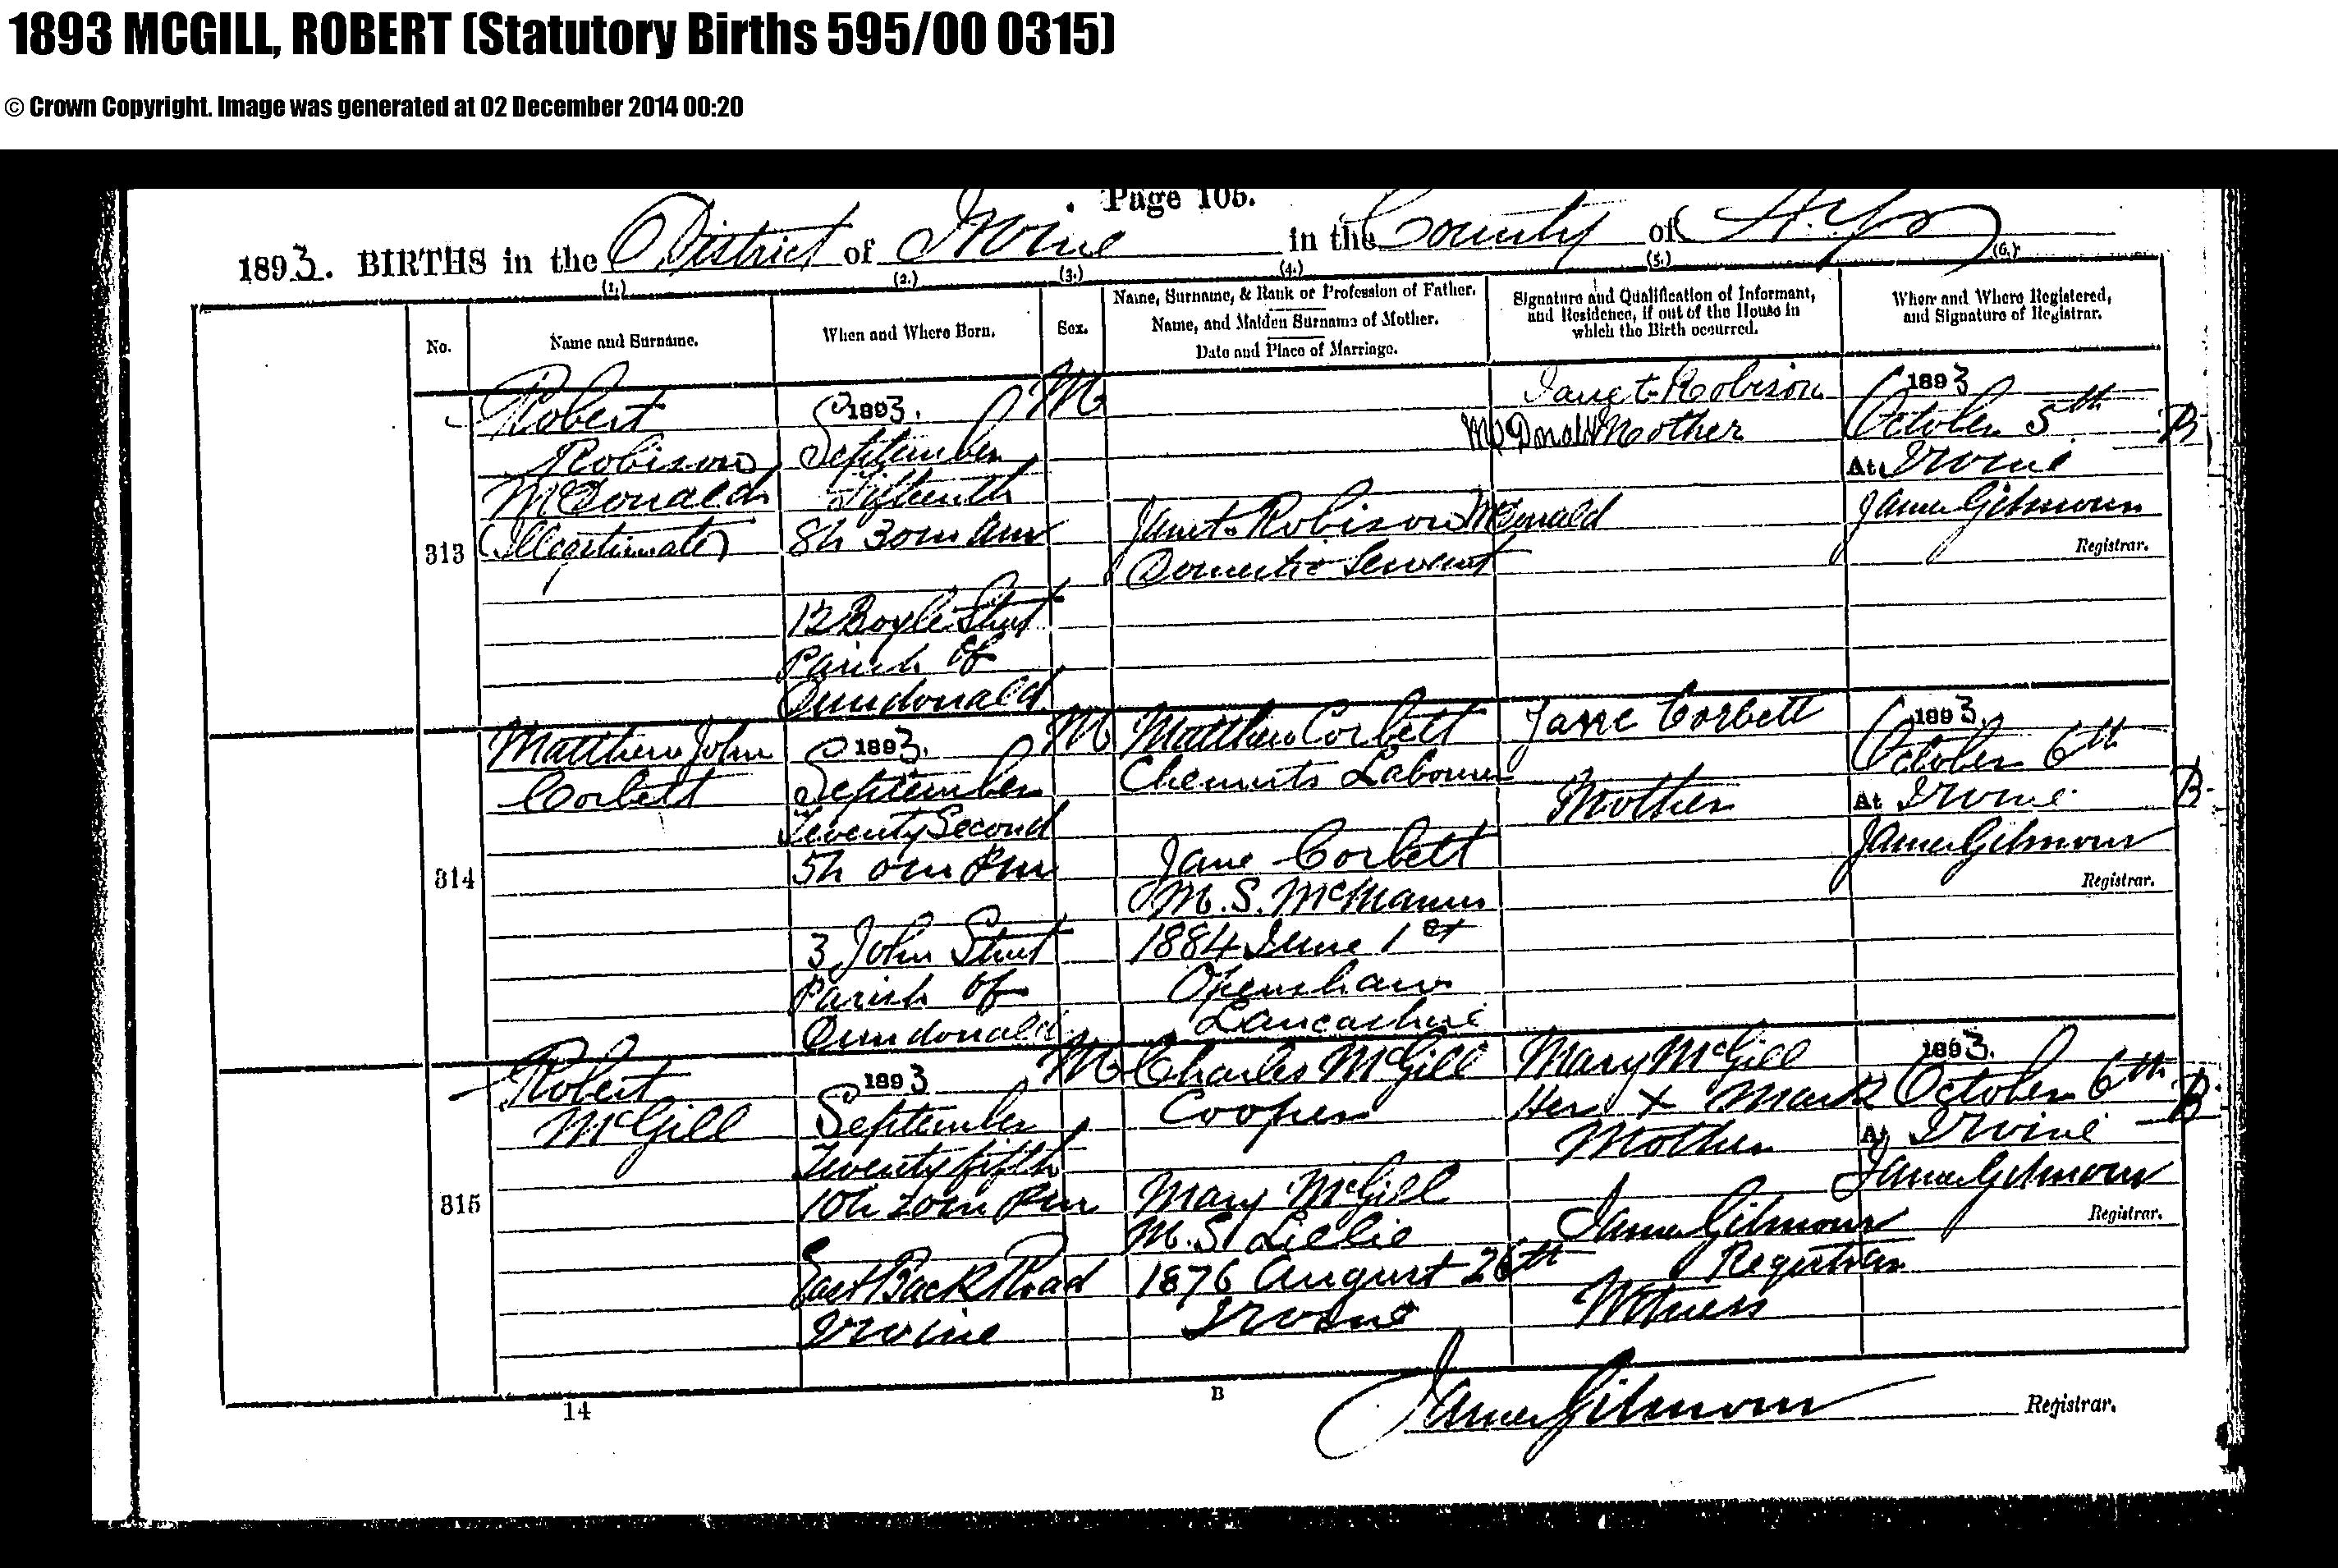 1893 MCGILL, ROBERT (Statutory Births 595/00 0315)
© Crown Copyright. Image was generated at 02 December 2014 00:20
Page 105.
1893. BIRTHS in the District of Irvine in the County of Ayr
(1.) (2.) (3.) (4.) (5.) (6.)
No.
Name and Surname.
When and Where Born.
Sex.
Name, Surname, & Rank or Profession of Father.
Name, and Maiden Surname of Mother.
Date and Place of Marriage.
Signature and Qualification of Informant,
and Residence, if out of the House in
which the Birth occurred.
When and Where Registered,
and Signature of Registrar.
313
Robert
Robison
McDonald
(Illegitimate)
1893.
September
Fifteenth
8h 30m am
12 Boyle Street
Parish of
Dundonald
M
Janet Robison McDonald
Domestic Servant
Janet Robison
McDonald Mother
1893
October 5th
At Irvine
James Gilmour
Registrar.
B
314
Matthew John
Corbett
1893.
September
Twenty Second
5h 0m Pm
3 John Street
Parish of
Dundonald
M
Matthew Corbett
Chemists Labourer
Jane Corbett
M.S. McManus
1884 June 1st
Openshaw
Lancashire
Jane Corbett
Mother
1893.
October 6th
At Irvine
James Gilmour
Registrar.
B
315
Robert
McGill
1893
September
Twenty fifth
10h 20m Pm
East Back Road
Irvine
M
Charles McGill
Cooper
Mary McGill
M.S. Lillie
1876 August 26th
Irvine
Mary McGill
Her X Mark
Mother
James Gilmour
Registrar
Witness
1893.
October 6th
At Irvine
James Gilmour
Registrar.
B
14
B
James Gilmour Registrar.